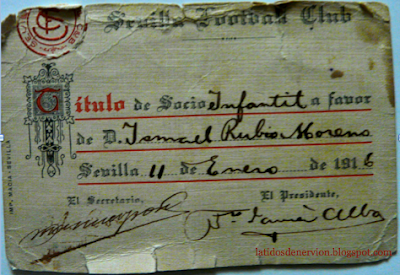 Sevilla Football Club
Título de Socio Infantil a favor
de D. Ismael Rubio Moreno
Sevilla 11 de Enero de 1916
El Secretario, El Presidente,
IMP. MADIA-SEVILLA
latidosdenervion.blogspot.com